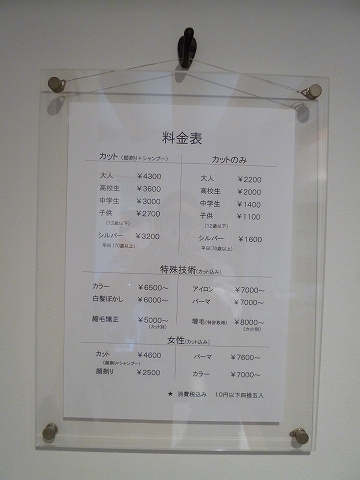 料金表
カット (顔剃り+シャンプー) カットのみ
大人 ¥4300 大人 ¥2200
高校生 ¥3600 高校生 ¥2000
中学生 ¥3000 中学生 ¥1400
子供 ¥2700 子供 ¥1100
(12歳以下) (12歳以下)
シルバー ¥3200 シルバー ¥1600
平日(70歳以上) 平日(70歳以上)
特殊技術(カット込み)
カラー ¥6500～ アイロン ¥7000～
白髪ぼかし ¥6000～ パーマ ¥7000～
縮毛矯正 ¥5000～ 増毛(特許取得) ¥8000～
(カット別) (カット別)
女性(カット込み)
カット ¥4600 パーマ ¥7600～
(顔剃り+シャンプー)
顔剃り ¥2500 カラー ¥7000～
★ 消費税込み 10円以下四捨五入